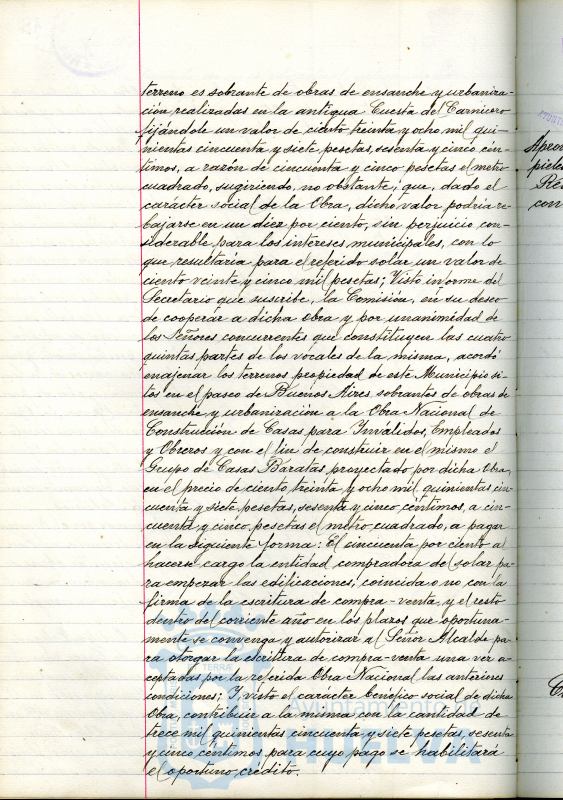 terreno es sobrante de obras de ensanche y urbaniza-
ción realizadas en la antigua Cuesta del Carnicero
fijándole un valor de ciento treinta y ocho mil qui-
nientas cincuenta y siete pesetas, sesenta y cinco cén-
timos, a razón de cincuenta y cinco pesetas el metro
cuadrado, sugiriendo, no obstante, que, dado el
carácter social de la Obra, dicho valor podría re-
bajarse en un diez por ciento, sin perjuicio con-
siderable para los intereses municipales, con lo
que resultaría para el referido solar un valor de
ciento veinte y cinco mil pesetas; Visto informe del
Secretario que suscribe, la Comisión, en su deseo
de cooperar a dicha obra y por unanimidad de
los Señores concurrentes que constituyen las cuatro
quintas partes de los vocales de la misma, acordó
enajenar los terrenos propiedad de este Municipio si-
tos en el paseo de Buenos Aires sobrantes de obras de
ensanche y urbanización a la Obra Nacional de
Construcción de Casas para Inválidos, Empleados
y Obreros y con el fin de construir en el mismo el
Grupo de Casas Baratas proyectado por dicha Obra,
en el precio de ciento treinta y ocho mil quinientas cin-
cuenta y siete pesetas, sesenta y cinco céntimos, a cin-
cuenta y cinco pesetas el metro cuadrado, a pagar
en la siguiente forma: El cincuenta por ciento al
hacerse cargo la entidad compradora del solar pa-
ra empezar las edificaciones, coincida o no con la
firma de la escritura de compra-venta, y el resto
dentro del corriente año en los plazos que oportuna-
mente se convenga y autorizar al Señor Alcalde pa-
ra otorgar la escritura de compra-venta una vez a-
ceptadas por la referida Obra Nacional las anteriores
condiciones; Y visto el carácter benéfico social de dicha
Obra, contribuir a la misma con la cantidad de
trece mil quinientas cincuenta y siete pesetas, sesenta
y cinco céntimos para cuyo pago se habilitará
el oportuno crédito.
TERRA
Ayuntamiento de